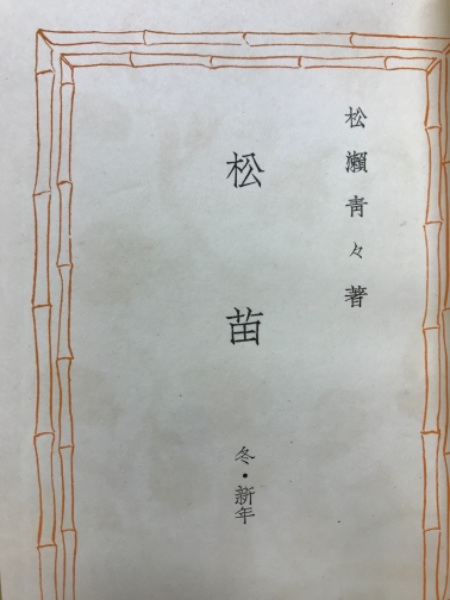 松瀨靑々著
松苗
冬・新年